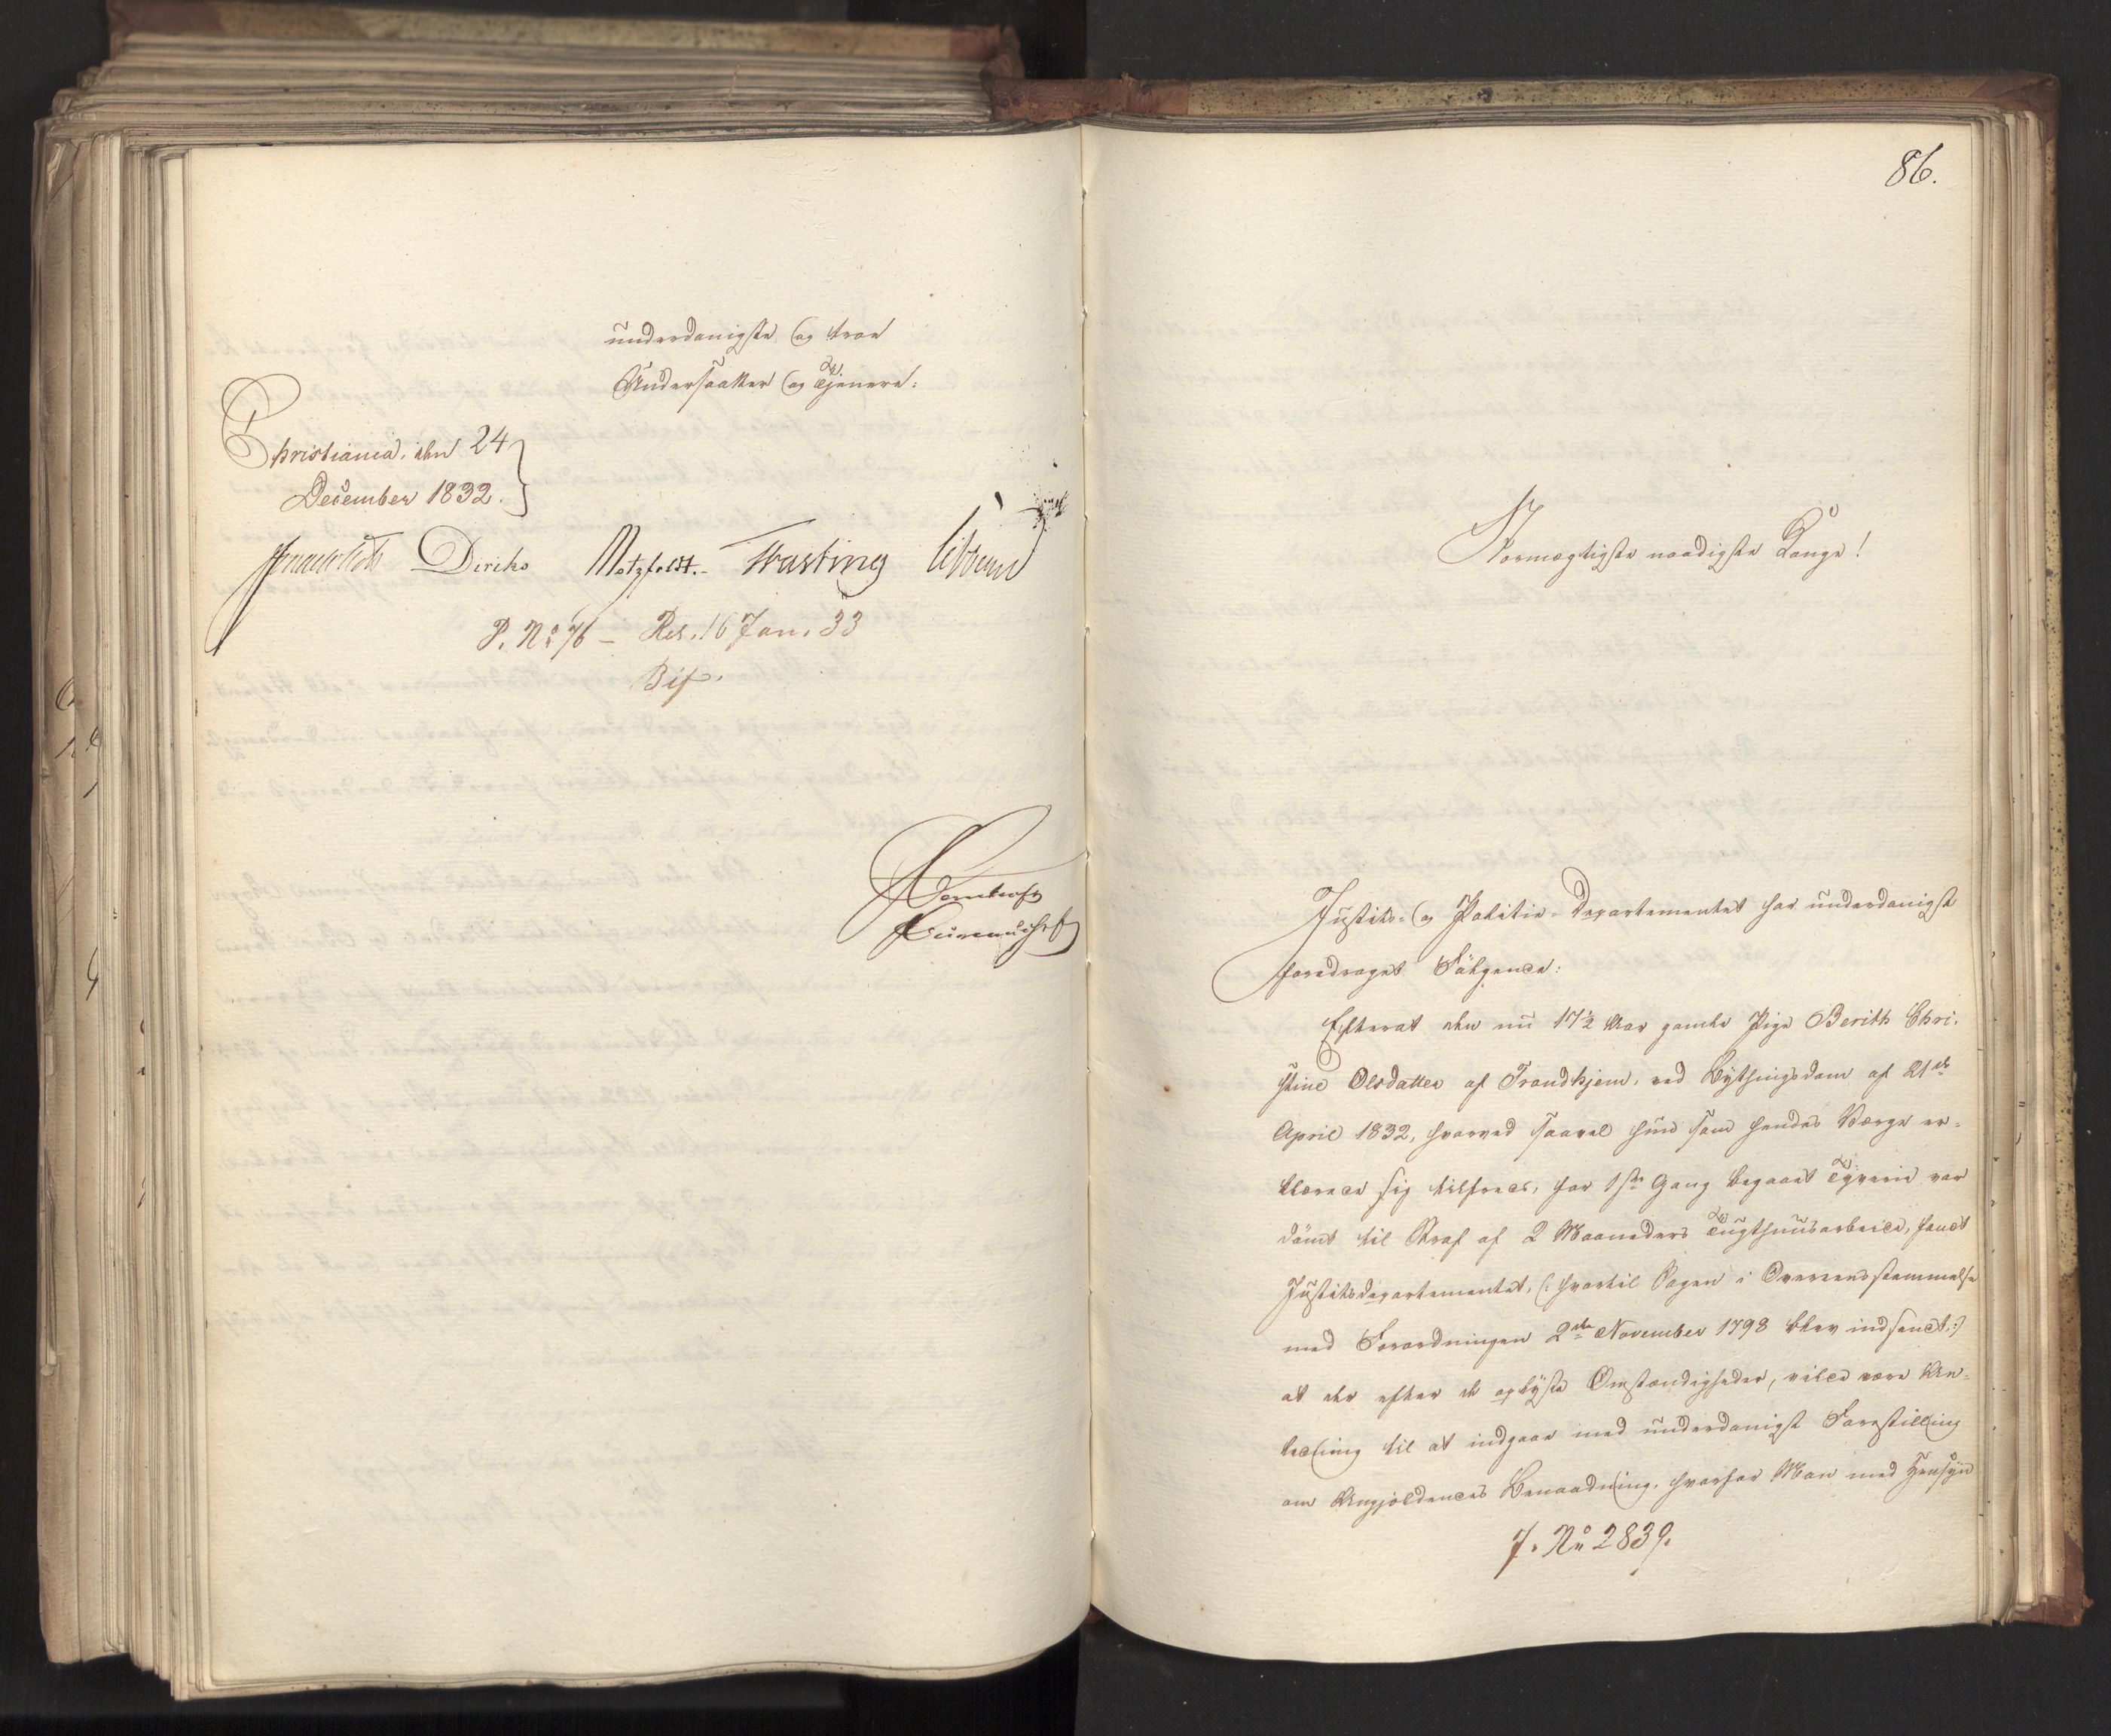 underdanigste og troe
Undersaatter og Tjenere:
Christiania, den 24
December 1832.
Diriks Motzfeldt. Fasting
P. No 76 – Res. 16 Jan. 33
Bif.
86.
Stormægtigste naadigste Konge!
Justits- og Politie-Departementet har underdanigst
foredraget Følgende:
Efterat den nu 17½ Aar gamle Pige Berith Chri-
stine Olsdatter af Trondhjem, ved Bythingsdom af 21de
April 1832, hvorved saavel hun som hendes Værge er-
klærede sig tilfreds, for 1ste Gang begaaet Tyverie var
dømt til Straf af 2 Maaneders Tugthuusarbeide, fandt
Justitsdepartementet, (: hvortil Sagen i Overeensstemmelse
med Forordningen 2den November 1798 blev indsendt, :)
at der efter de oplyste Omstændigheder, vilde være An-
ledning til at indgaae med underdanigst Forestilling
om Angjældendes Benaadning, hvorfor Man med Hensyn
J. No 2839.